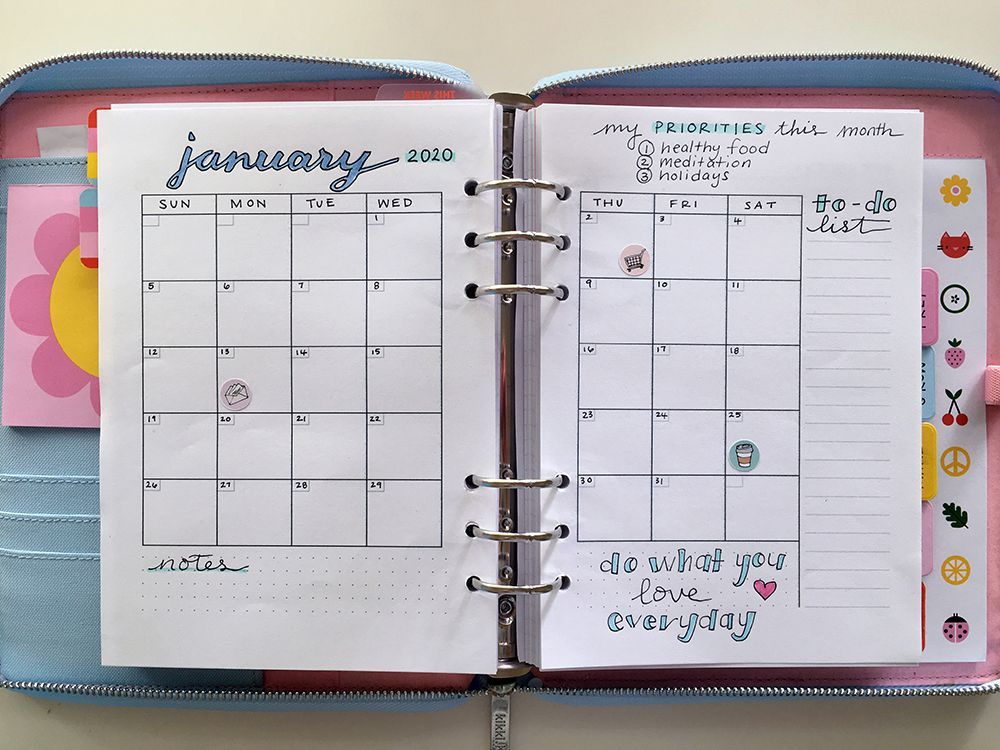 THIS WEEK
january 2020
SUN MON TUE WED
1
5 6 7 8
12 13 14 15
19 20 21 22
26 27 28 29
notes
my PRIORITIES this month
1 healthy food
2 meditation
3 holidays
THU FRI SAT
2 3 4
9 10 11
16 17 18
23 24 25
30 31
to-do
list
do what you
love
everyday
kikki